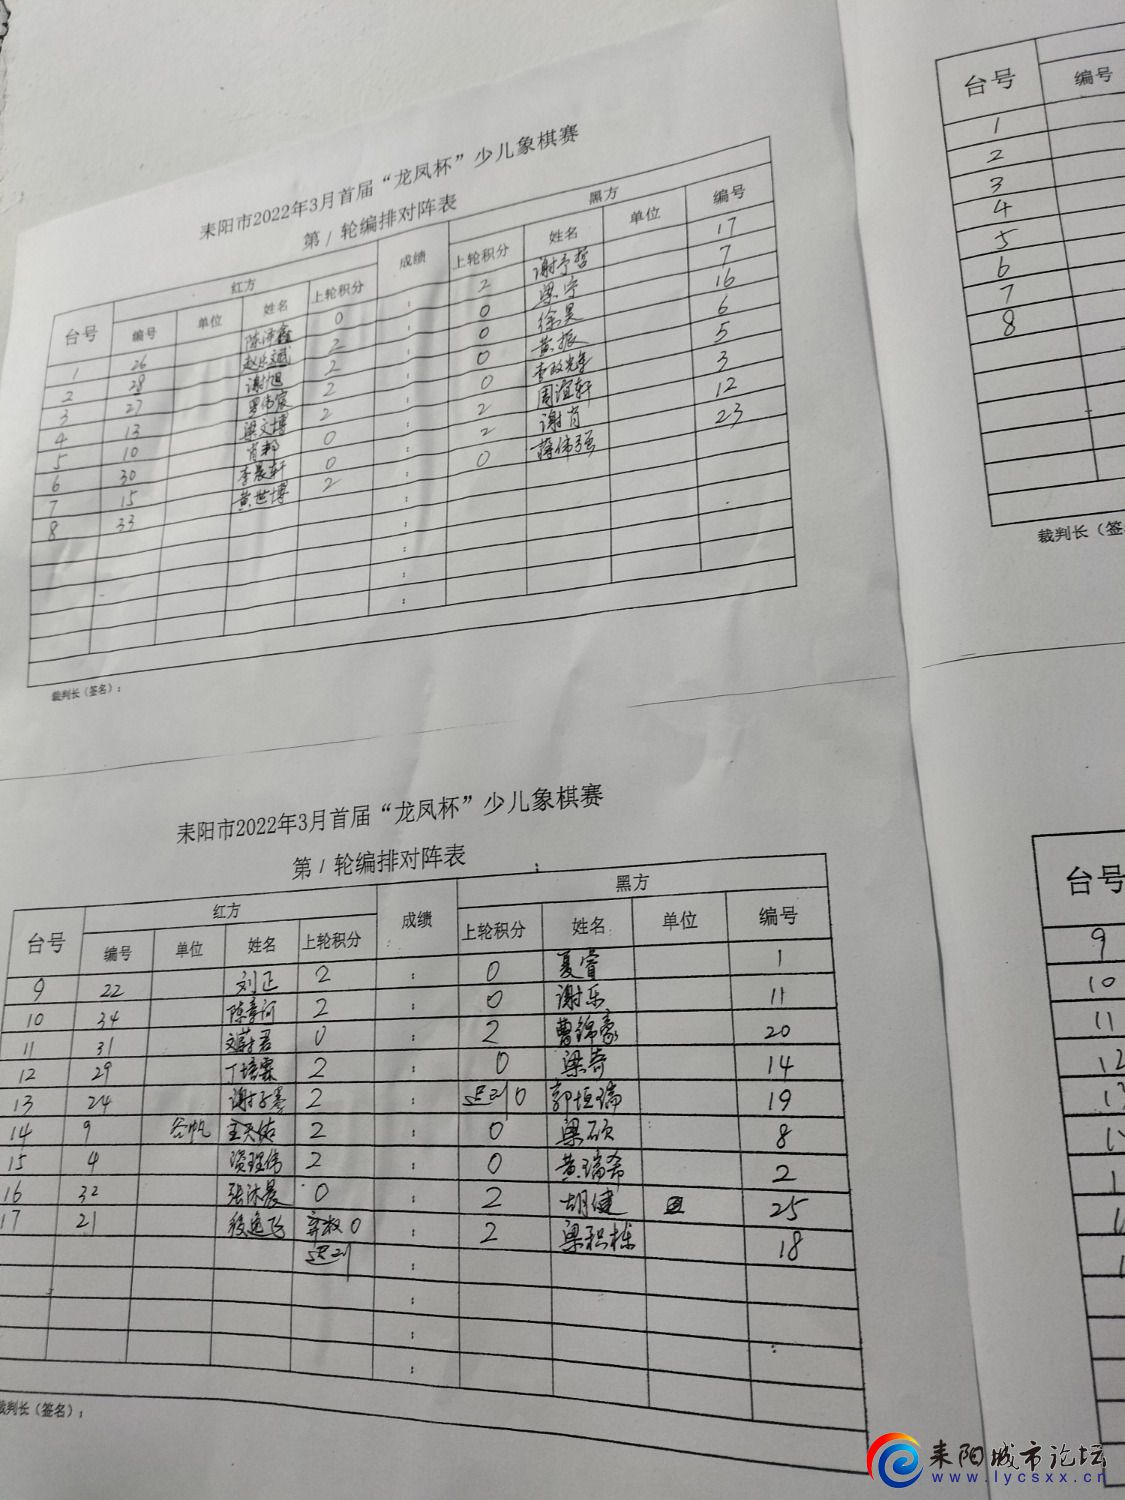 耒阳市2022年3月首届“龙凤杯”少儿象棋赛
第1轮编排对阵表
台号 红方 成绩 黑方
编号 单位 姓名 上轮积分 上轮积分 姓名 单位 编号
1 26 0 : 2 谢予哲 17
2 28 2 : 0 梁宁 7
3 27 谢旭 2 : 0 徐昊 16
4 13 罗伟宸 2 : 0 黄振 6
5 10 梁文博 2 : 0 5
6 30 0 : 2 周谊轩 3
7 15 李晨轩 0 : 2 谢肖 12
8 33 黄世博 2 : 0 蒋伟强 23
裁判长（签名）：
耒阳市2022年3月首届“龙凤杯”少儿象棋赛
第1轮编排对阵表
台号 红方 成绩 黑方
编号 单位 姓名 上轮积分 上轮积分 姓名 单位 编号
9 22 刘正 2 : 0 夏睿 1
10 34 2 : 0 谢乐 11
11 31 0 : 2 曹锦豪 20
12 29 丁培霖 2 : 0 梁奇 14
13 24 2 : 迟到 0 郭恒瑞 19
14 9 谷帆 2 : 0 梁硕 8
15 4 2 : 0 黄瑞希 2
16 32 张沐晨 0 : 2 胡健 25
17 21 弃权 0 : 2 梁积栋 18
迟到
裁判长（签名）：
台号
编号
1
2
3
4
5
6
7
8
裁判长（签
台号
9
10
11
12
耒阳城市论坛
www.lycsxx.cn